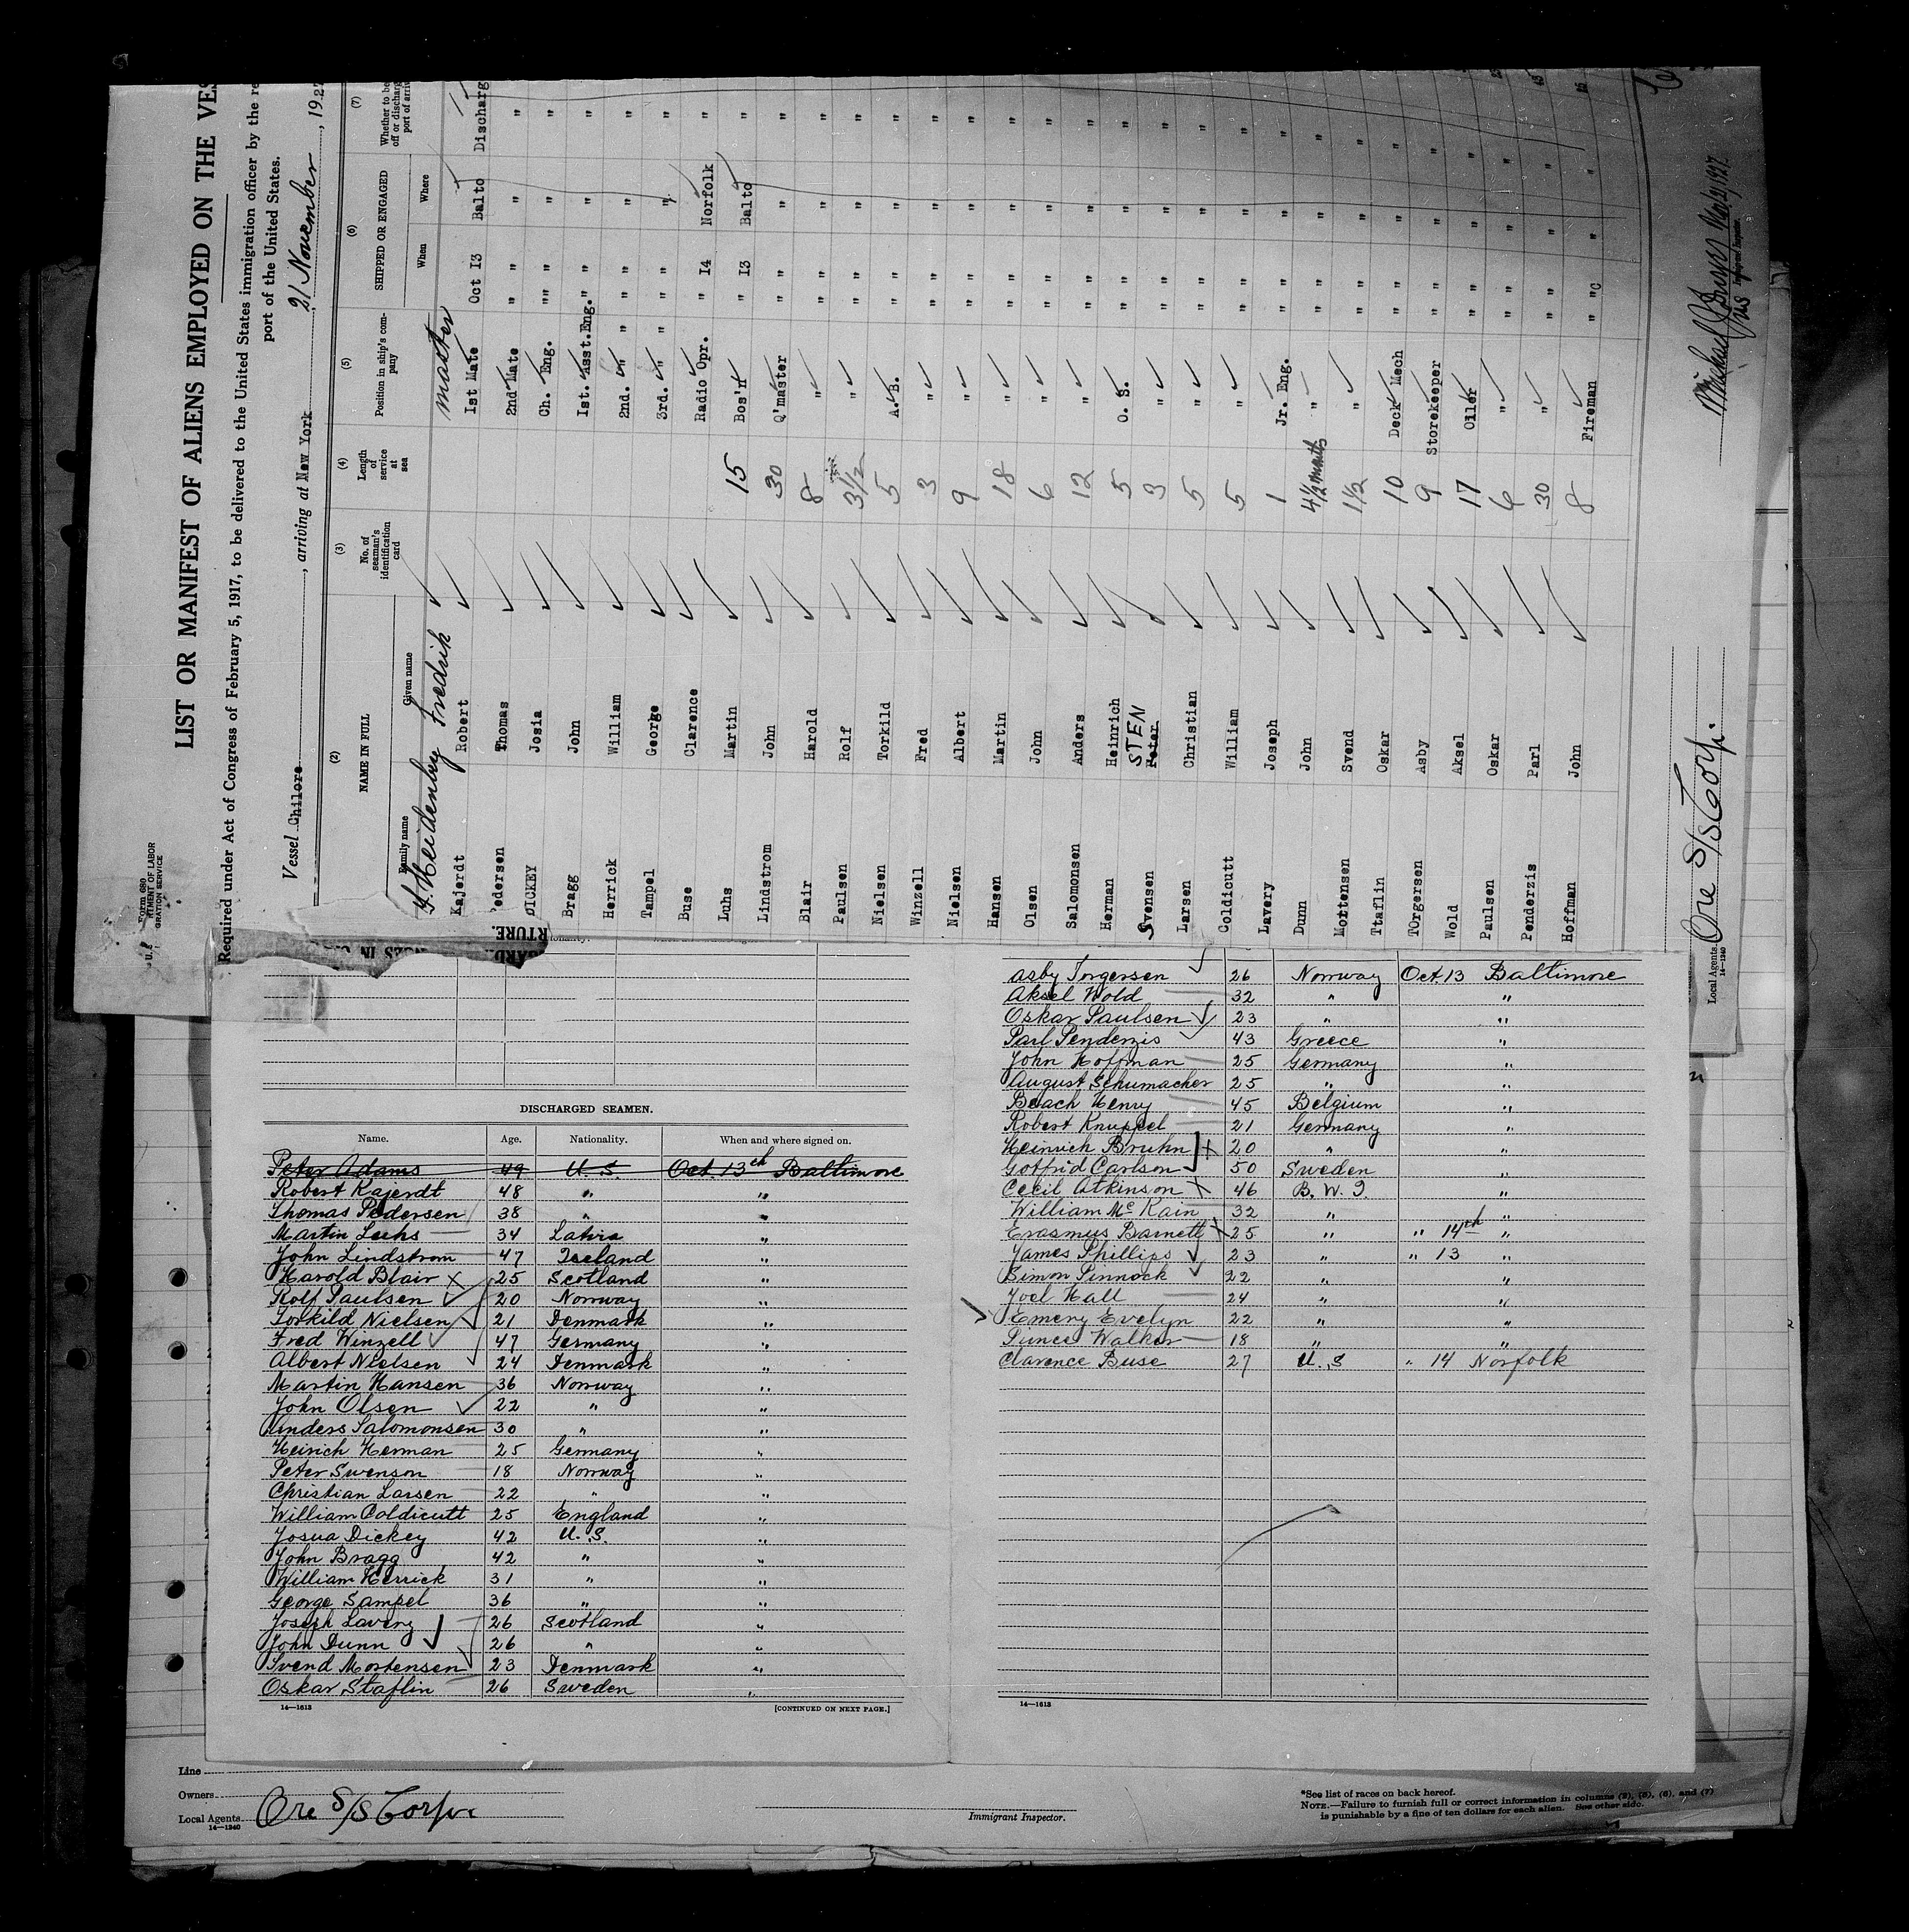 LIST OR MANIFEST OF ALIENS EMPLOYED ON THE VES
Required under Act of Congress of February 5, 1917, to be delivered to the United States immigration officer by the re
port of the United States.
Vessel Chilore, arriving at New York 21 November, 192
(2) (3) (4) (5) (6) (7)
NAME IN FULL No. of seaman's identification card Length of service at sea Position in ship's company SHIPPED OR ENGAGED Whether to be off or discharg port of arriv
Family name Given name When Where
Heidenby Fredrik master
Kajerdt Robert 1st Mate Oct 13 Balto Discharg
Pedersen Thomas 2nd Mate " " " "
DICKEY Josia Ch. Eng. "" " " "
Bragg John 1st. Asst.Eng. " " " "
Herrick William 2nd. " " " " " "
Tampel George 3rd. " " " " " "
Buse Clarence Radio Opr. " 14 Norfolk "
Luhs Martin 15 Bos'n " 13 Balto "
Lindstrom John 30 Q'master " " " "
Blair Harold 8 " " " " "
Paulsen Rolf 3½ " " " " "
Nielsen Torkild 5 A.B. " " " "
Winzell Fred 3 " " " " "
Nielsen Albert 9 " " " " "
Hansen Martin 18 " " " " "
Olsen John 6 " " " " "
Salomonsen Anders 12 " " " " "
Herman Heinrich 5 O. S. " " " "
Svensen STEN Peter 3 " " " " "
Larsen Christian 5 " " " " "
Coldicutt William 5 " " " " "
Lavery Joseph 1 Jr. Eng. " " " "
Dunn John 4½ months " " " " "
Mortensen Svend 1½ " " " " "
Ttaflin Oskar 10 Deck Mech " " " "
TOrgersen Asby 9 Storekeeper " " " "
Wold Aksel 17 Oiler " " " "
Paulsen Oskar 6 " " " " "
Penderzis Parl 30 " " " " "
Hoffman John 8 Fireman " " " "
Local Agents Ore S/S Corp.
14—1240
DISCHARGED SEAMEN.
Name. Age. Nationality. When and where signed on.
Peter Adams 49 U. S. Oct. 13th Baltimore
Robert Kajerdt 48 " "
Thomas Pedersen 38 " "
Martin Luhs 34 Latvia "
John Lindstrom 47 Iceland "
Harold Blair 25 Scotland "
Rolf Paulsen 20 Norway "
Torkild Nielsen 21 Denmark "
Fred Winzell 47 Germany "
Albert Nielsen 24 Denmark "
Martin Hansen 36 Norway "
John Olsen 22 " "
Anders Salomonsen 30 " "
Heinich Herman 25 Germany "
Peter Swenson 18 Norway "
Christian Larsen 22 " "
William Coldicutt 25 England "
Josua Dickey 42 U. S. "
John Bragg 42 " "
William Herrick 31 " "
George Sampel 36 " "
Joseph Lavery 26 Scotland "
John Dunn 26 " "
Svend Mortensen 23 Denmark "
Oskar Staflin 26 Sweden "
14—1613 [CONTINUED ON NEXT PAGE.]
Asby Torgersen 26 Norway Oct. 13 Baltimore
Aksel Wold 32 " "
Oskar Paulsen 23 " "
Parl Penderzis 43 Greece "
John Hoffman 25 Germany "
August Schumacher 25 " "
Beach Henry 45 Belgium "
Robert Knuppel 21 Germany "
Heinrich Bruhn 20 " "
Gotfrid Carlson 50 Sweden "
Cecil Atkinson 46 B. W. I. "
William McKain 32 " "
Erasmus Barnett 25 " " 14th "
James Phillips 23 " " 13 "
Simon Pinnock 22 " "
Joel Hall 24 " "
Emery Evelyn 22 " "
Walker 18 " "
Clarence Buse 27 U. S " 14 Norfolk
14—1613
Line
Owners
Local Agents Ore S/S Corpn
14—1240
Immigrant Inspector.
*See list of races on back hereof.
NOTE.—Failure to furnish full or correct information in columns (2), (5), (6), and (7)
is punishable by a fine of ten dollars for each alien. See other side.